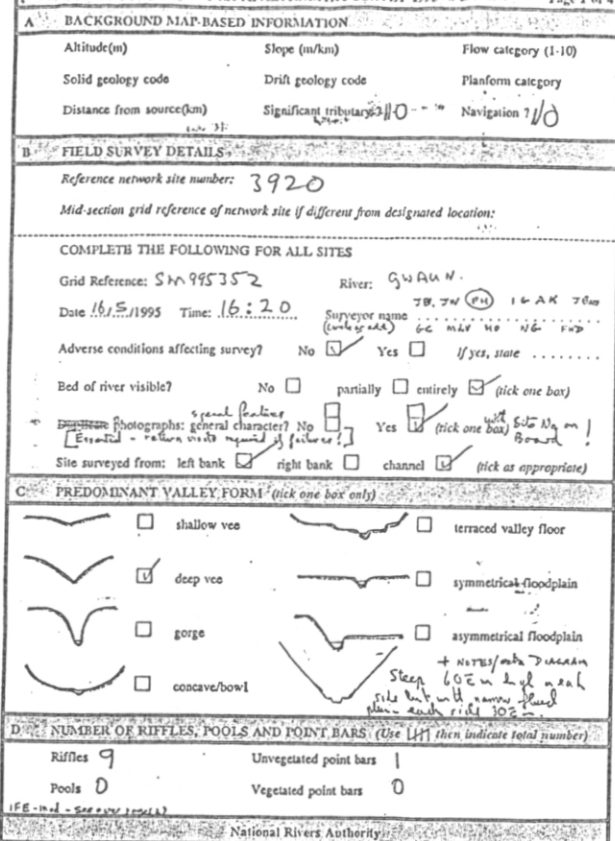 Page 1 of 4
A BACKGROUND MAP-BASED INFORMATION
Altitude(m) Slope (m/km) Flow category (1-10)
Solid geology code Drift geology code Planform category
Distance from source(km) Significant tributary? NO Navigation ? NO
B FIELD SURVEY DETAILS
Reference network site number: 3920
Mid-section grid reference of network site if different from designated location:
COMPLETE THE FOLLOWING FOR ALL SITES
Grid Reference: SM995352 River: GWAUN.
JB, JW PH IG AK
Date 16/5/1995 Time: 16:20 Surveyor name
(circle or add) GC MLV HO NG FWD
Adverse conditions affecting survey? No Yes If yes, state ........
Bed of river visible? No partially entirely (tick one box)
special features
photographs: general character? No Yes (tick one box) with Site No on Board!
[Essential - return visits required if failures!]
Site surveyed from: left bank right bank channel (tick as appropriate)
C PREDOMINANT VALLEY FORM (tick one box only)
shallow vee terraced valley floor
deep vee symmetrical floodplain
gorge asymmetrical floodplain
+ NOTES/ DIAGRAM
concave/bowl
Steep 60 m high each
side but with narrow flood
plain each side 30 m
D NUMBER OF RIFFLES, POOLS AND POINT BARS (Use then indicate total number)
Riffles 9 Unvegetated point bars 1
Pools 0 Vegetated point bars 0
National Rivers Authority